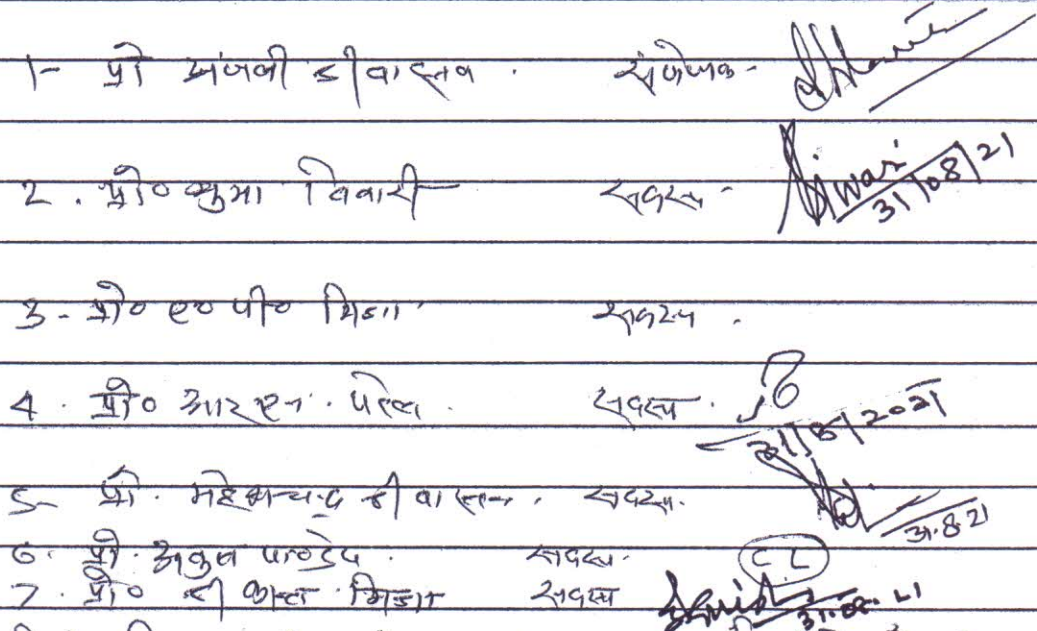 1- प्रो अंजली श्रीवास्तव . संयोजक -
2 . प्रो० सुमा तिवारी सदस्य - Tiwari 31/08/21
3 - प्रो० ए० पी० मिश्रा सदस्य .
4 . प्रो० आर एन . पटेल . सदस्य . 31/8/2021
5- प्रो . महेशचन्द्र श्रीवास्तव . सदस्य . 31.8.21
6 . प्रो . अतुल पाण्डेय . सदस्य . CL
7 . प्रो० श्री कान्त मिश्रा सदस्य 31.08.21